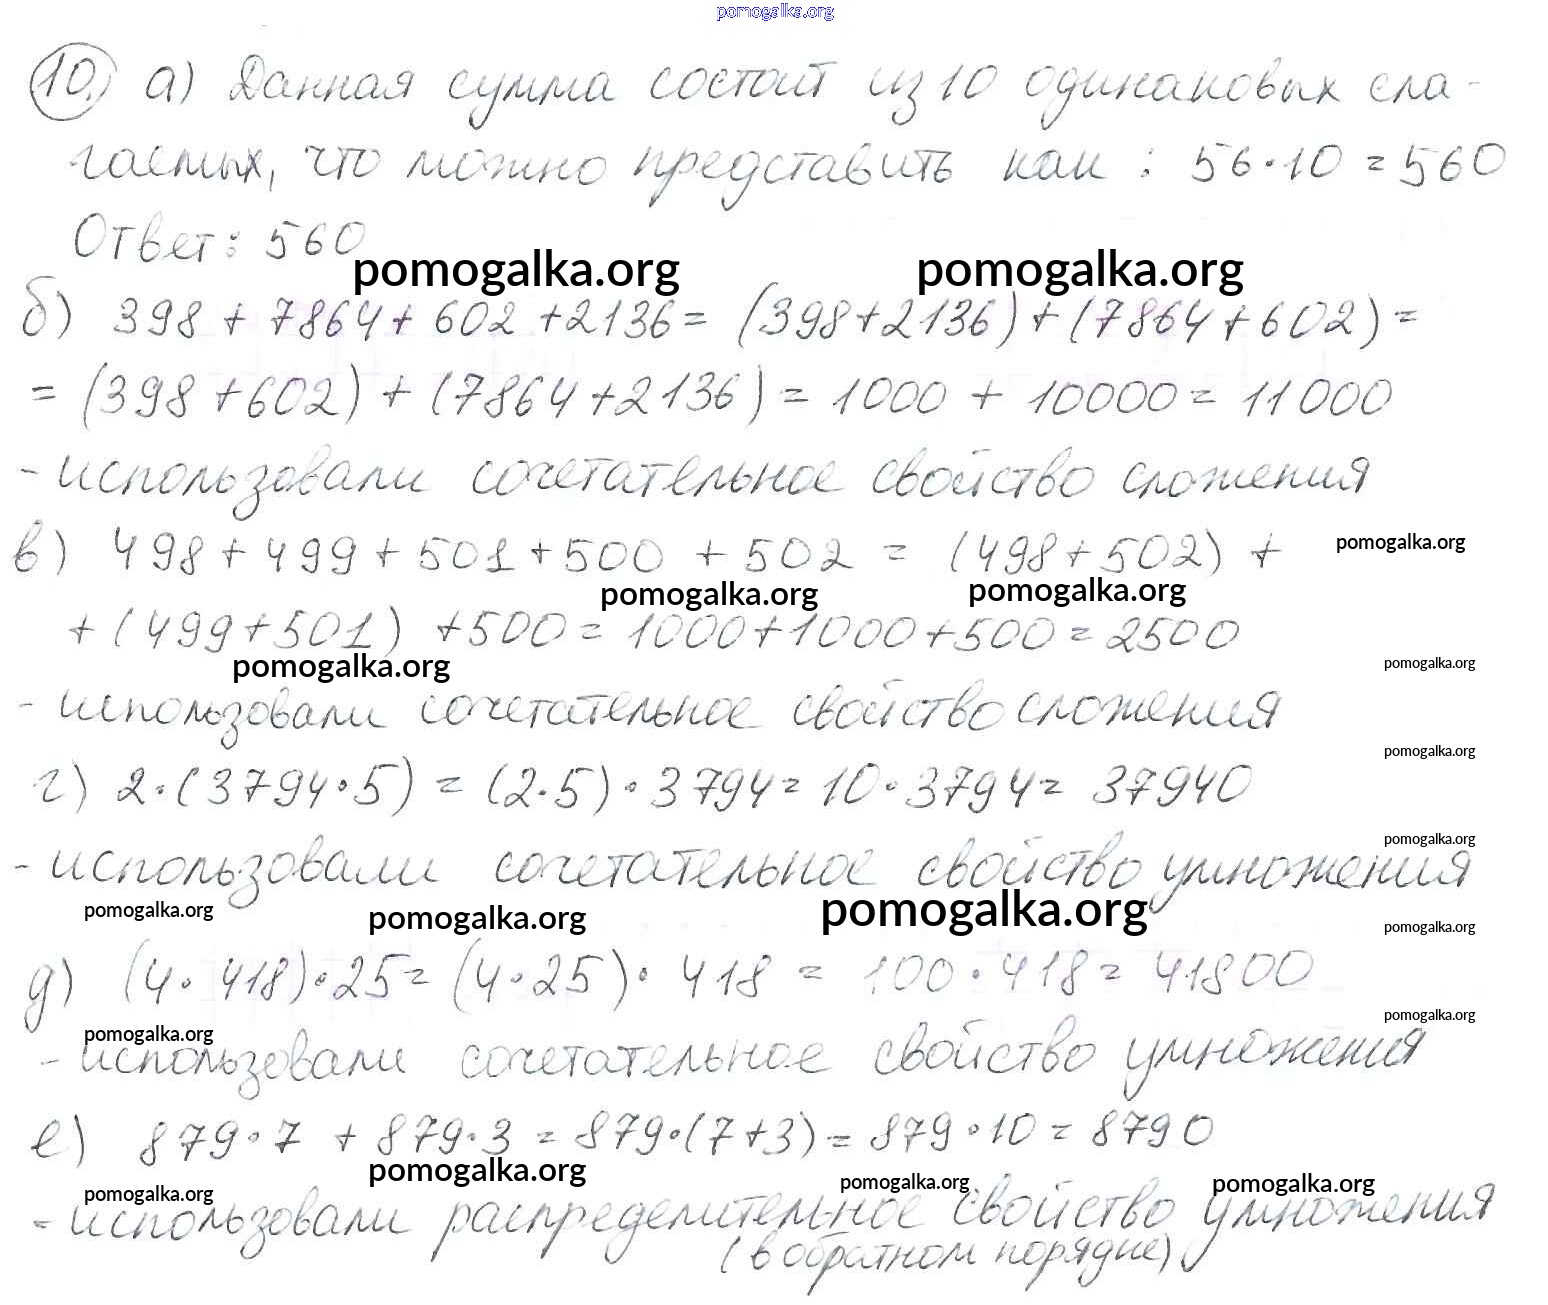 pomogalka.org
10. а) Данная сумма состоит из 10 одинаковых сла-
гаемых, что можно представить как : 56·10 = 560
Ответ: 560
pomogalka.org pomogalka.org
б) 398 + 7864 + 602 + 2136 = (398+2136) + (7864+602) =
= (398+602) + (7864+2136) = 1000 + 10000 = 11000
- использовали сочетательное свойство сложения
в) 498 + 499 + 501 + 500 + 502 = (498+502) +
pomogalka.org
pomogalka.org pomogalka.org
+ (499+501) + 500 = 1000+1000+500 = 2500
pomogalka.org pomogalka.org
- использовали сочетательное свойство сложения
pomogalka.org
г) 2·(3794·5) = (2·5)·3794 = 10·3794 = 37940
pomogalka.org
- использовали сочетательное свойство умножения
pomogalka.org pomogalka.org pomogalka.org
pomogalka.org
д) (4·418)·25 = (4·25)·418 = 100·418 = 41800
pomogalka.org
pomogalka.org
- использовали сочетательное свойство умножения
е) 879·7 + 879·3 = 879·(7+3) = 879·10 = 8790
pomogalka.org
pomogalka.org pomogalka.org pomogalka.org
- использовали распределительное свойство умножения
(в обратном порядке)